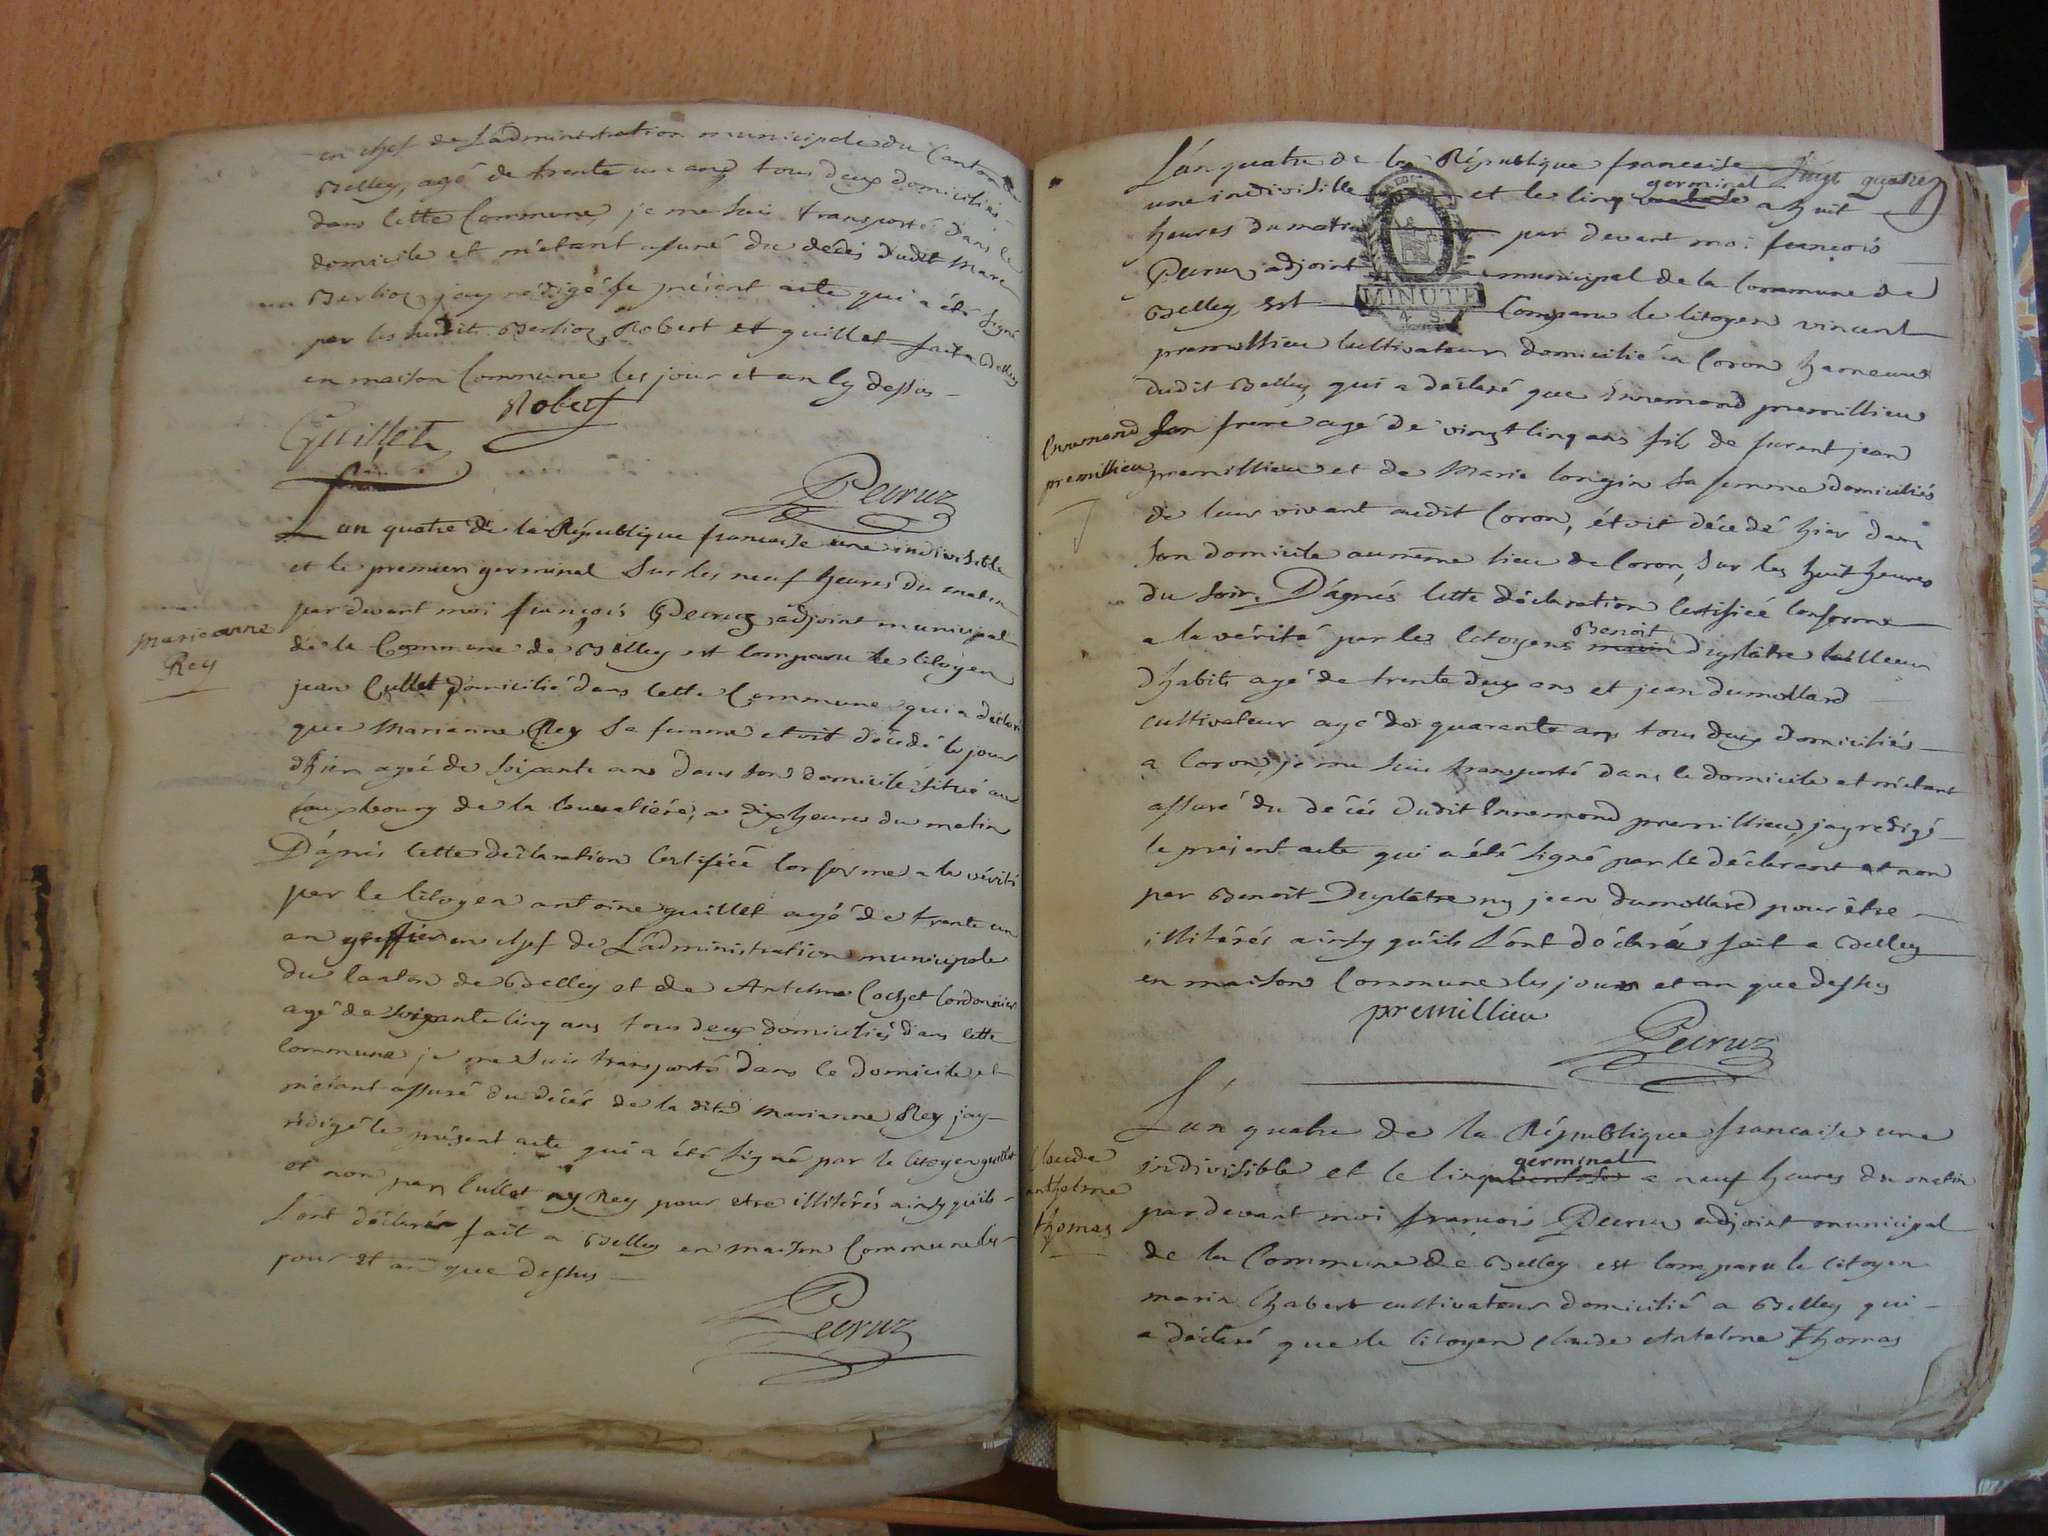 en chef de L'administration municipale du Canton de
Belley, agé de trente un ans tous deux domiciliés
dans cette Commune, je me suis transporté dans le
domicile et m'etant assuré du décès dudit Marc
Berlioz jay rédigé le présent acte qui a été signé
par les susdit Berlioz, Robert et guillet fait a Belley
en maison Commune les jour et an cy dessus
Guillet
Robert
Pecruz
Marieanne
Rey
L'an quatre de la République francaise une indivisible
et le premier germinal sur les neuf heures du matin
par devant moi françois Pecruz adjoint municipal
de la Commune de Belley est comparu le citoyen
jean Cullet domicilié dans cette Commune qui a déclaré
que Marianne Rey sa femme etoit décédé le jour
d'hier ageé de soixante ans dans son domicile situé au
fauxbourg de la , a dix heures du matin
D'après cette déclaration certifiée conforme a la vérité
par le citoyen antoine guillet agé de trente un
an greffier en chef de L'administration municipale
du canton de Belley et de Antelme Cochet Cordonnier
agé de soixante cinq ans tous deux domiciliés dans cette
commune je me suis transporté dans le domicile et
m'étant assuré du décés de la dite Marianne Rey jay
rédigé le présent acte qui a été signé par le citoyen guillet
et non par Cullet ny Rey pour etre illitérés ainsy quils
l'ont déclarés fait a Belley en maison Commune les
jour et an que dessus
Pecruz
vingt quatre
L'an quatre de la République francaise
une indivisible et le cinq germinal a huit
heures du matin par devant moi françois
Pecruz adjoint municipal de la Commune de
MINUTE
4. S.
Belley est Comparu le citoyen vincent
premillieu Cultivateur domicilié a Coron hameau
dudit Belley, qui a déclaré que Ennemond premillieu
Ennemond
premillieu
son frere agé de vingt cinq ans fils de furent jean
premillieu et de Marie longin sa femme domiciliés
de leur vivant audit Coron, étoit décedé hier dans
son domicile au même lieu de Coron, sur les huit heures
du soir. D'après cette déclaration certifiée conforme
a la vérité par les citoyens Benoit Duplâtre tailleur
d'habits agé de trente deux ans et jean dumollard
cultivateur agé de quarante ans tous deux domiciliés
a Coron, je me suis transporté dans le domicile et m'étant
assuré du décés dudit Ennemond premillieu, jay redigé
le présent acte qui a été signé par le déclarant et non
par Benoit Duplâtre ny jean dumollard pour être
illitérés ainsy quils l'ont déclaré fait a Belley
en maison Commune les jour et an que dessus
premillieu
Pecruz
Claude
anthelme
thomas
L'an quatre de la République francaise une
indivisible et le cinq germinal a neuf heures du matin
par devant moi françois Pecruz adjoint municipal
de la Commune de Belley est comparu le citoyen
marin Chabert cultivateur domicilié a Belley qui
a déclaré que le citoyen claude Antelme Thomas